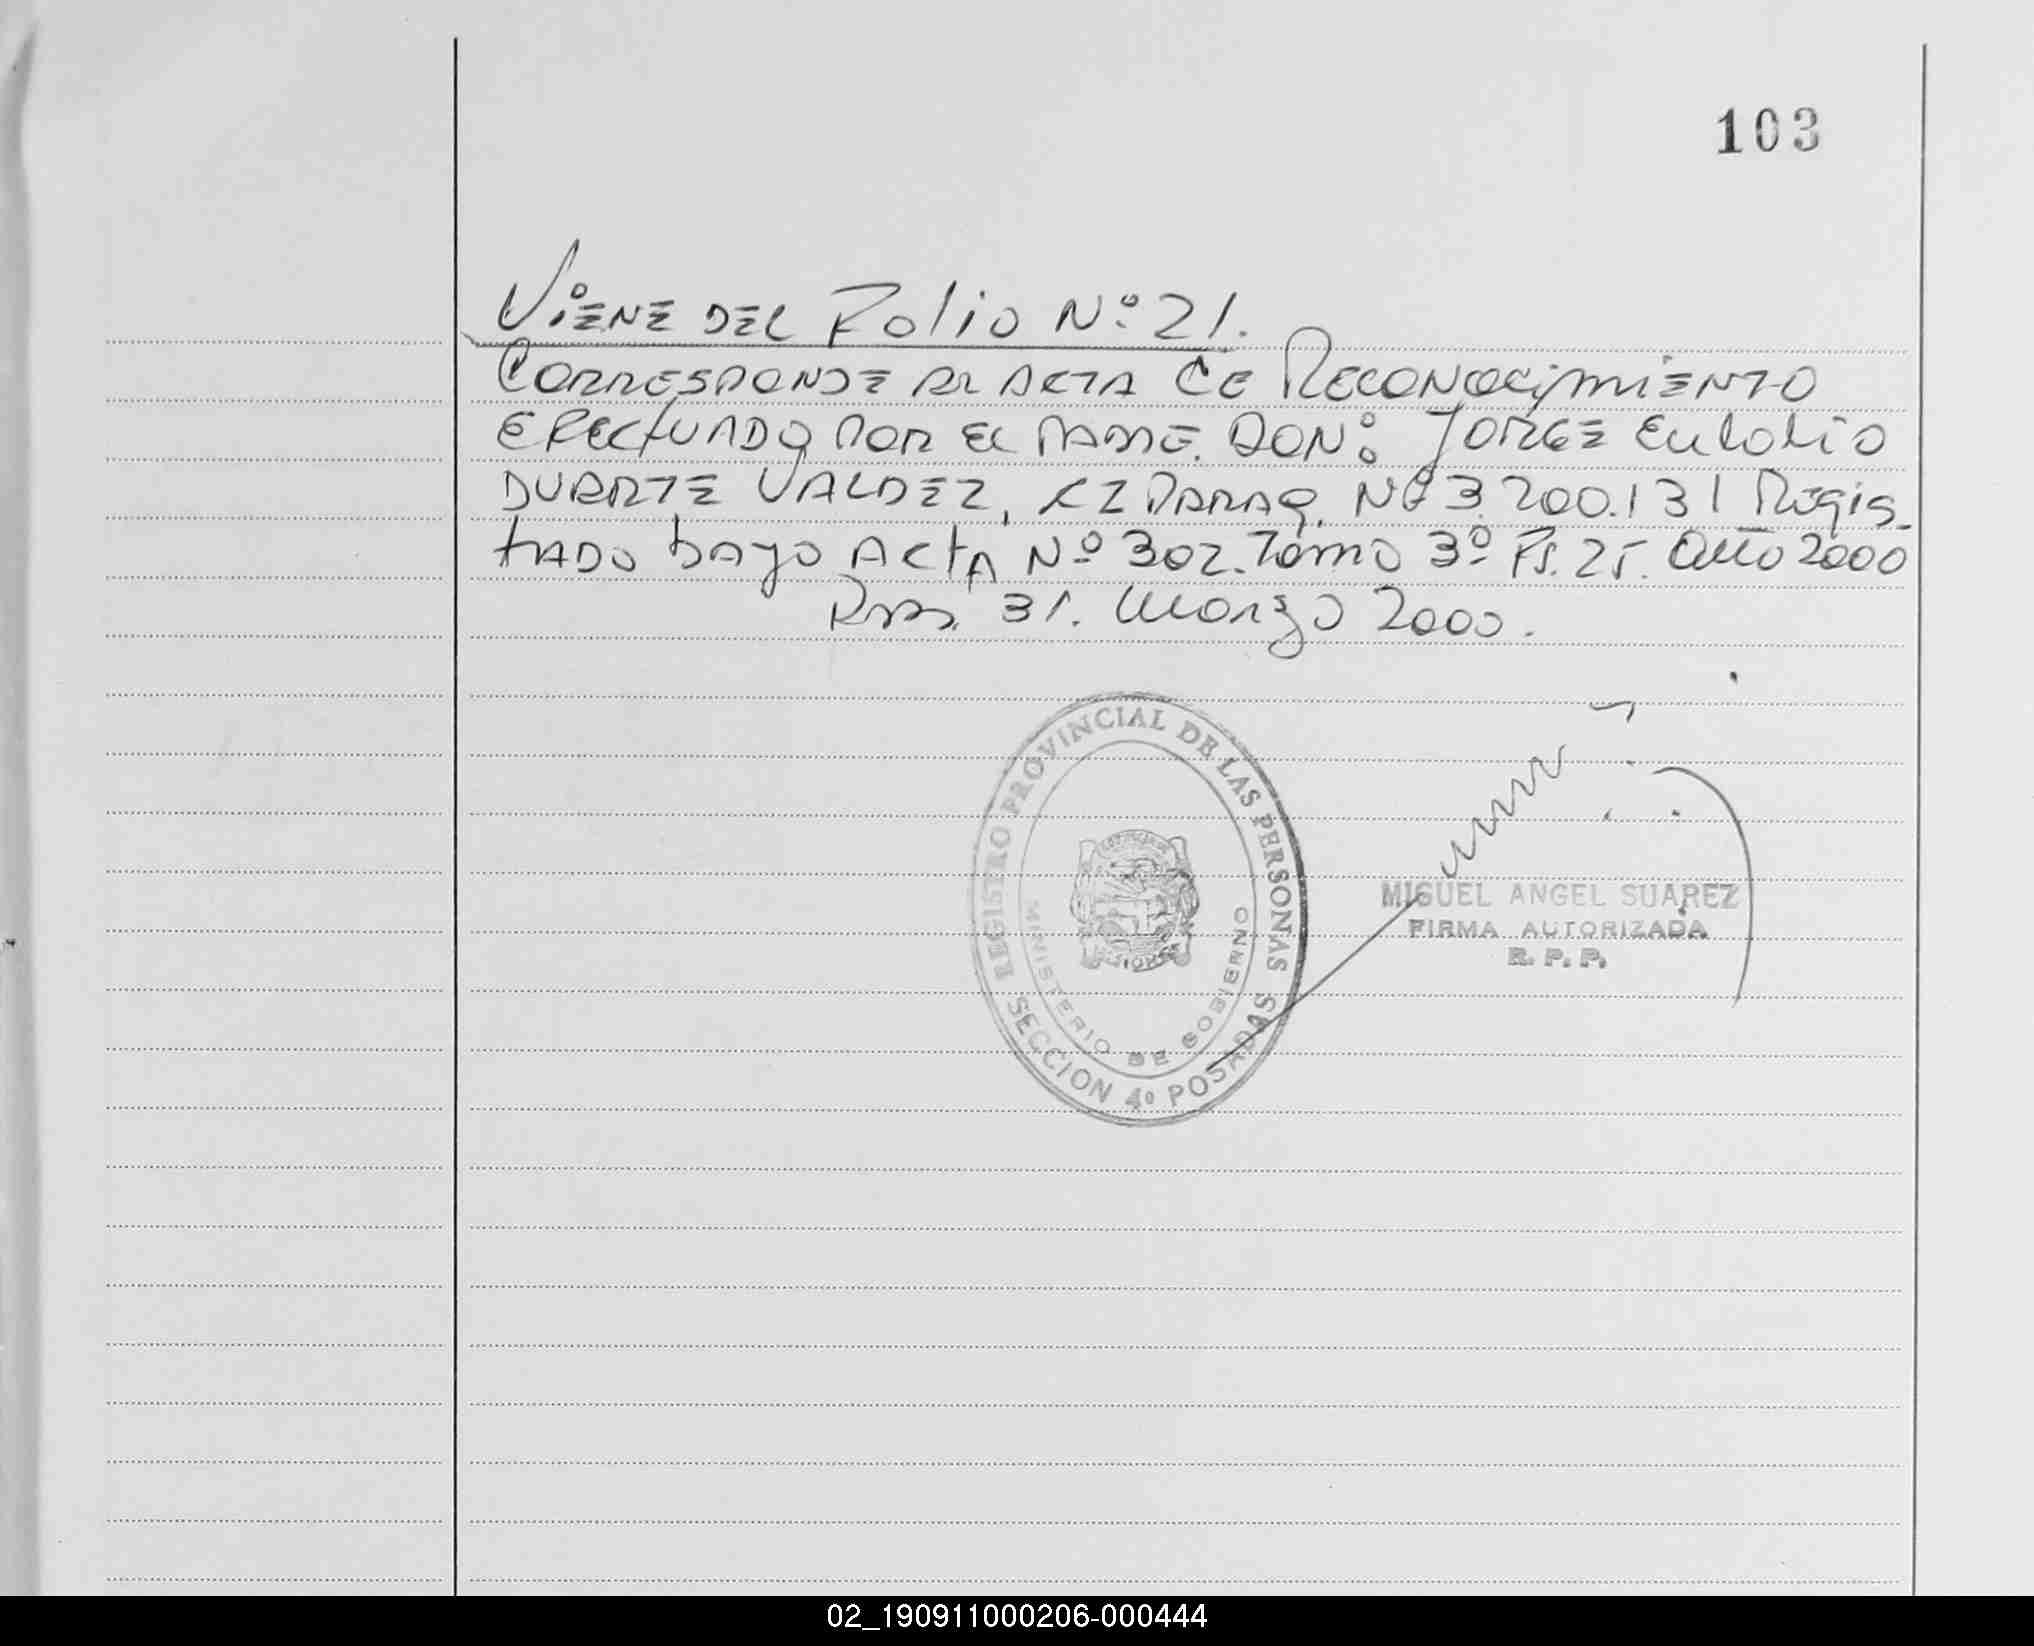 103
Viene del Folio Nº 21.
Corresponde al Acta de Reconocimiento
efectuado por el padre. Don: Jorge Eulolio
Duarte Valdez, CI Parag. Nº 3.200.131 Regis-
trado bajo Acta Nº 302. Tomo 3º Fs. 25. Año 2000
Pdas. 31. Marzo 2000.
REGISTRO PROVINCIAL DE LAS PERSONAS
MINISTERIO DE GOBIERNO
SECCION 4º POSADAS
MIGUEL ANGEL SUAREZ
FIRMA AUTORIZADA
R. P. P.
02_190911000206-000444